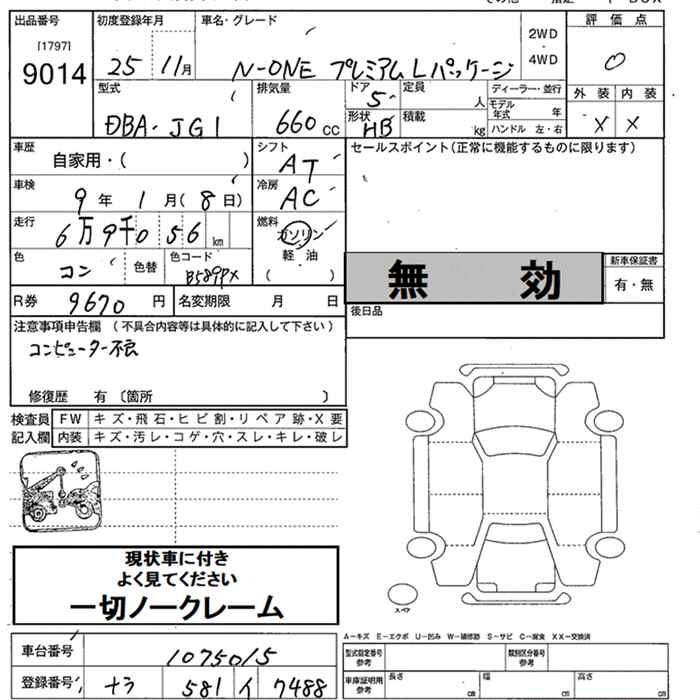 出品番号 初度登録年月 車名・グレード 評価点
[1797]
9014 25 11月 N-ONE プレミアム Lパッケージ 2WD 4WD 0
型式 排気量 ドア 定員 ディーラー・並行 外装 内装
DBA-JG1 660cc 5 人 モデル年式 年 X X
形状 HB 積載 kg ハンドル 左・右
車歴 自家用・( ) シフト AT セールスポイント(正常に機能するものに限ります)
車検 9年 1月(8日) 冷房 AC
走行 6万9千056km 燃料 ガソリン
軽油
( )
色 コン 色替 色コード B589PX 無効 新車保証書
有・無
R券 9670円 名変期限 月 日 後日品
注意事項申告欄(不具合内容等は具体的に記入して下さい)
コンピューター不良
修復歴 有〔箇所 〕
検査員 FW キズ・飛石・ヒビ割・リペア跡・X要
記入欄 内装 キズ・汚レ・コゲ・穴・スレ・キレ・破レ
現状車に付き
よく見てください
一切ノークレーム
スペア
A-キズ E-エクボ U-凹み W-補修跡 S-サビ C-腐食 XX-交換済
車台番号 1075015 型式指定番号 参考 類別区分番号 参考
登録番号 ナラ 581 イ 7488 車庫証明用 参考 長さ cm 幅 cm 高さ cm